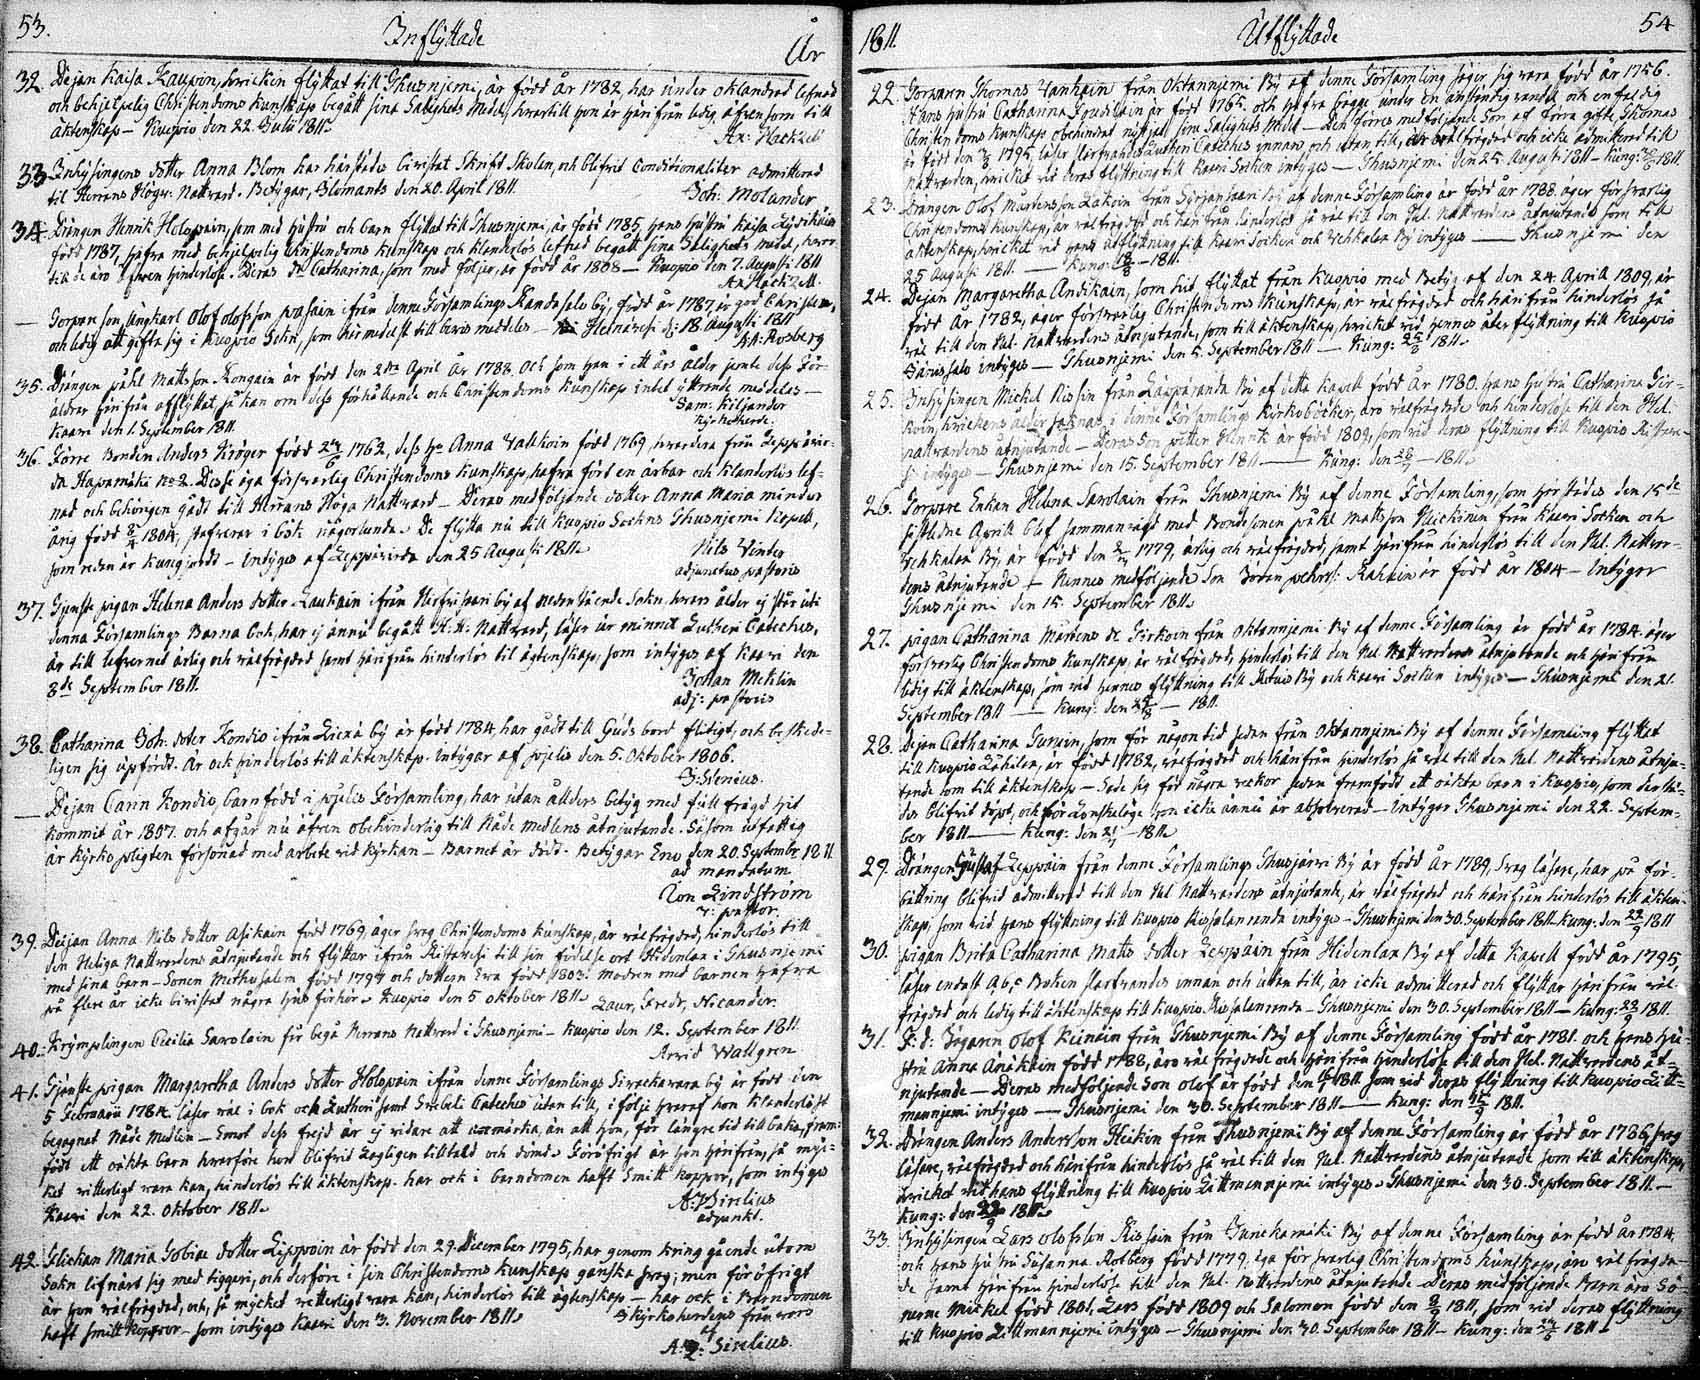 53.
Inflyttade
År
32. Dejan Kaisa Kaupin, hvilken flyttat till Thusnjemi, är född år 1782 har under oklandrad lefnad
och behjelpelig Christendoms kunskap begått sina Salighets Medel, hvartill hon är härifrån ledig äfven som till
äktenskap – Kuopio den 22. Julii 1811.
Ax: Hackzell
33 Inhysingens dotter Anna Blom har härstädes bevistat Skrift Skolan, och blifvit Conditionaliter admitterad
til Herrans Högv: Nattvard. Betygar, Ilomants den 20. April 1811.
Joh: Molander
34. Drängen Henrik Holopain, som med hustru och barn flyttat till Thusnjemi, är född 1785, hans hustru Kaisa
född 1787, hafva med behjelpelig Christendoms kunskap och klanderlös lefnad begått sina Salighets medel, hvar-
till de äro äfven hinderlöse. Deras dr Catharina, som med följer, är född år 1808 – Kuopio den 7. Augusti 1811
Ax Hackzell.
— Torpare son, Ungkarl Olof olofsson ifrån denne Församlings Kandosalo by, född år 1787, är god Christen,
och ledig att gifta sig i Kuopio Sokn, som härmedelst till bevis meddeles – Heinävesi d: 18. Augusti 1811
A: Rosberg
35. Drängen påhl Mattsson Kongain är född den 2dra April år 1788. Och som han i ett års ålder jemte dess För-
äldrar härifrån afflyttat så kan om dess förhållande och Christendoms kunskap intet yttrande meddelas –
Kaavi den 1. September 1811.
Sam: Kiljander
Kyrkoherde.
36. Förre Bonden Anders Kröger född 24/6 1762, dess hu Anna Vallkoin född 1769, hvardera från Leppävir-
ta Haapamäki No 2. Desse äga försvarlig Christendoms kunskap, hafva fört en ärbar och klanderlös lef-
nad och behörigen gådt till Herrans Höga Nattvard – Deras medföljande dotter Anna Maria minder
årig född 8/4 1804, stafvar i bok någorlunda. De flytta nu till Kuopio Sochns Thusnjemi Kapell,
som redan är kungjordt – Intygas af Leppävirta den 25 Augusti 1811.
Nils Winter
adjunctus pastoris
37. Tjenste pigan Helena Anders dotter Laukain ifrån by af nedanstående Sokn, hvars ålder ej står uti
denna Församlings Barna bok, har ej ännu begått H. H: Nattvard, läser ur minnet Lutheri Cateches,
är till lefvernet ärlig och välfrägdad samt härifrån hinderlös til ägtenskap, som intygas af Kaavi den
3de September 1811.
Johan Meklin
adj: pastoris
38. Catharina Joh: doter Kondio ifrån by är född 1784 har gådt till Guds bord flitigt, och beskede-
ligen sig upfördt. Är ock hinderlös till äktenskap. Intygar af pjelis den 5. Oktober 1806.
J: Stenius.
— Dejan Carin Kondio, barnfödd i pjelis Församling, har utan allders betyg med full frägd hit
kommit år 1807. och afgår nu äfven obehinderlig till Nåde Medlens åtnjutande. Såsom utfattig
är kyrkopligten försonad med arbete vid kyrkan – Barnet är dödt. Betygar Eno den 20. September 1811
ad mandatum
Lindström
v: pastor.
39. Deijan Anna Nils dotter Asikain född 1769, äger svag Christendoms kunskap, är välfrägdad, hinderlös till
den Heliga Nattvardens åtnjutande och flyttar ifrån Ristavesi till sin födelse ort Hidenlax i Thusnjemi
med sina barn – Sonen Methusalem född 1797 och dottern Eva född 1803. modren med barnen hafva
på flere år icke bivistat några husförhör. Kuopio den 5 oktober 1811.
Laur: Fredr: Nicander.
40. Krymplingen Cecilia Savolain får begå Herrans Nattvard i Thusnjemi – Kuopio den 12. September 1811
Arvid Wallgren
41. Tjenste pigan Margaretha Anders dotter Holopain ifrån denne Församlings Sivackavara by är född den
5 Februarii 1784. läser väl i bok och Lutheri samt Svebeli Cateches utan till, i följe hvaraf hon klanderlöst
begagnat Nåde Medlen – Emot dess frejd är ej vidare att anmärka, än att hon, för längre tid tillbaka, fram-
födt ett oäkta barn hvarföre hon blifvit lagligen tilltald och dömd. Föröfrigt är hon härifrån, så myc-
ket vitterligt vara kan, hinderlös till äktenskap. har ock i barndomen haft Smitt koppor, som intygas
Kaavi den 22. Oktober 1811.
A: J: Sirelius
adjunkt.
42. Flickan Maria Sobiae dotter Lippoin är född den 29. December 1795, har genom kring gående utom
Sokn lifnärt sig med tiggeri, och derföre i sin Christendoms kunskap ganska svag; men föröfrigt
är hon välfrägdad, och, så mycket vetterligt vara kan, hinderlös till ägtenskap – har ock i Barndomen
haft smittkoppor – som intygas Kaavi den 3. November 1811.
I Kyrkoherdens frånvaro
af
A: J: Sirelius.
1811.
Utflyttade
54
22. Torparn Thomas Vanhain från Oktannjemi By af denne Församling säger sig vara född år 1756.
Hans hustru Catharina är född 1765. och hafva begge under en anständig vandel och enfaldig
Christendoms kunskap obehindrat nyttjat sine Salighets Medel – Den förres medföljande Son af förra giftet, Thomas
är född den 1795, läser Lutheri Cateches innan och utan till, är välfrägdad och icke admitterad till
Nattvarden, hvilket vid deras flyttning till Kaavi Socken intyges – Thusnjemi den 25. Augusti 1811 – Kung: 1811.
23. Drängen Olof Mårtensson Lakoin från By af denne Församling är född år 1788 äger försvarlig
Christendoms kunskap, är välfrägdad och härifrån hinderlös så väl till den Hel. Nattvardens åtnjutande som till
äktenskap, hvilket vid hans utflyttning till Kaavi Socken och Vehkalax By intyges — Thusnjemi den
25 Augusti 1811. — Kung: 18/8 – 1811.
24. Dejan Margaretha Andikain, som hit flyttat från Kuopio med Betyg af den 24 April 1809, är
född år 1782, äger försvarlig Christendoms kunskap, är välfrägdad och härifrån hinderlös så
väl till den Hel. Nattvardens åtnjutande, som till äktenskap, hvilket vid hennes återflyttning till Kuopio
intyges – Thusnjemi den 5. September 1811 — Kung: 25/8 1811.
25. Inhysingen Mickel Rissin från Lapparanda By af detta Kapell född år 1780. hans hustru Catharina Gir-
koin, hvilkens ålder saknas i denne Församlings Kyrkoböcker, äro välfrägdade och hinderlöse till den Hel.
nattvardens åtnjutande – Deras Son petter Henrik är född 1809, som vid deras flyttning till Kuopio
intyges – Thusnjemi den 15. September 1811 — Kung: den — 1811.
26. Torpare Enkan Helena Savolain från Thusnjemi By af denne Församling, som härstädes den 15de
sistledne April blef sammanvigd med Bondesonen påhl Mattsson Meickinen från Kaavi Socken och
Vehkalax By, är född den 1779, ärlig och välfrägdad, samt härifrån hinderlös till den Hel. Nattvar-
dens åtnjutande – Hennes medföljande Son Sören pehrss: Kahain är född år 1804 – Intyger
Thusnjemi den 15. September 1811.
27. pigan Catharina Mårtens dr Girkoin från Oktannjemi By af denne Församling är född år 1784. äger
försvarlig Christendoms kunskap, är välfrägdad, hinderlös till den Hel Nattvardens åtnjutande och härifrån
ledig till äktenskap, som vid hennes flyttning till By och Kaavi Socken intyges – Thusnjemi den 21.
September 1811 — Kung: den — 1811.
28. Dejan Catharina Turuin, som för någon tid sedan från Oktannjemi By af denne Församling flyttat
till Kuopio, är född 1782, välfrägdad och härifrån hinderlös så väl till den Hel. Nattvardens åtnju-
tande som till äktenskap – Sade sig för några veckor sedan framfödt ett oäkta barn i Kuopio, som derstä-
des blifvit döpt, och för Lönskeläge hon icke ännu är absolverad – Intyger Thusnjemi den 22. Septem-
ber 1811 — Kung: den — 1811.
29. Drängen Gustaf Leppäin från denne Församlings Thusjärvi By är född år 1789, svag läsare, har på för-
bättring blifvit admitterad till den Hel Nattvardens åtnjutande, är välfrägdad och härifrån hinderlös till äkten-
skap, som vid hans flyttning till Kuopio intyges – Thusnjemi den 30. September 1811 – Kung: den 22/9 1811
30. pigan Brita Catharina Mats dotter Leppäin från Hidenlax By af detta Kapell född år 1795,
läser endast A, b, c Boken innan och utan till, är icke admitterad och flyttar härifrån väl-
frägdad och ledig till äktenskap till Kuopio – Thusnjemi den 30. September 1811 – Kung: 22/9 1811.
31. F: d: Bågarn olof Keinäin från Thusnjemi By af denne Församling född år 1781. och hans hu-
stru Anna Anäkäin född 1788, äro välfrägdade och härifrån hinderlöse till den Hel. Nattvardens åt-
njutande — Deras medföljande Son Olof är född den 1811 som vid deras flyttning till Kuopio Litt-
mannjemi intyges — Thusnjemi den 30. September 1811 — Kung: den 1811.
32. Drängen Anders Andersson Heikin från Thusnjemi By af denne Församling är född år 1786, svag
läsare, välfrägdad och härifrån hinderlös så väl till den Hel. Nattvardens åtnjutande som till äktenskap,
hvilket vid hans flyttning till Kuopio Littmannjemi intyges. Thusnjemi den 30. September 1811.–
Kung: den 22/9 1811.
33. Inhysingen Lars olofsson Rissain från By af denne Församling är född år 1784
och hans hustru Susanna Rotberg född 1779. äga försvarlig Christendoms kunskap, äro välfrägda-
de samt härifrån hinderlöse till den Hel. Nattvardens åtnjutande – deras medföljande Barn äro Sö-
nerne Mickel född 1801, Lars född 1809 och Salomon född den 1811, som vid deras flyttning
till Kuopio Littmannjemi intyges – Thusnjemi den 30. September 1811 – Kung: den 1811